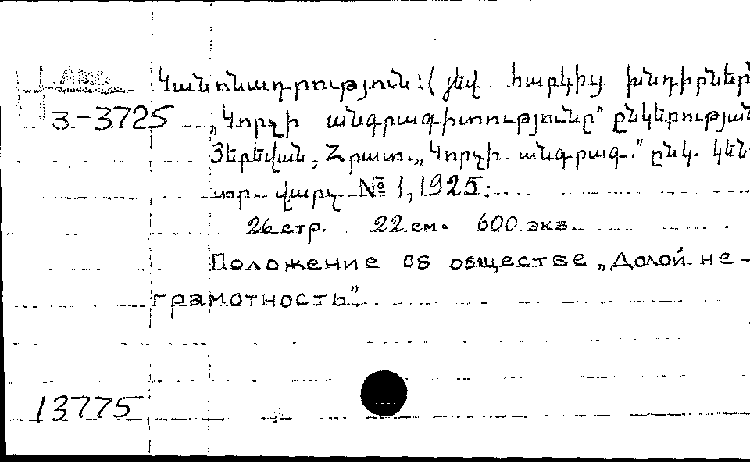 Կանոնադրություն (յեվ հարկից խնդիրներ
З-3725 „Կորչի անգրագիտությունը" ընկերության
Յերեվան, Հրատ. „Կորչի անգրագ." ընկ. կեն-
տր. վարչ №1, 1925.
26 стр. 22 см. 600 экз.
Положение об обществе „Долой не-
грамотность".
13775